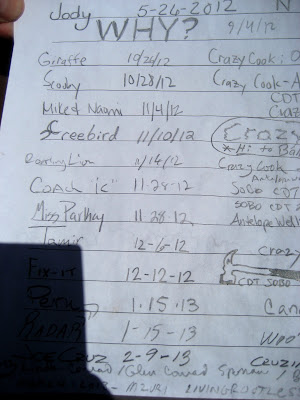 Jody 5-26-2012 N
WHY? 9/4/12
Giraffe 10/26/12 Crazy Cook:
Scooby 10/28/12 Crazy Cook-A
CDT
Mike & Naomi 11/4/12 Craz
Freebird 11/10/12 Crazy
Hi to Ba
Roaring Lion 11/14/12 Crazy Cook
Coach "C" 11-28-12 SoBo CDT
SOBO CDT 2
Miss Parkay 11.28.12 Antelope Well
Tamir 12-6-12 Crazy
Fix-it 12-12-12 CDT SOBO
Peru 1.15.13 Can
RADAR 1-15-13
Cruz 2-9-13 Cruzin
Glen Conrad
LIVINGROOTLESS